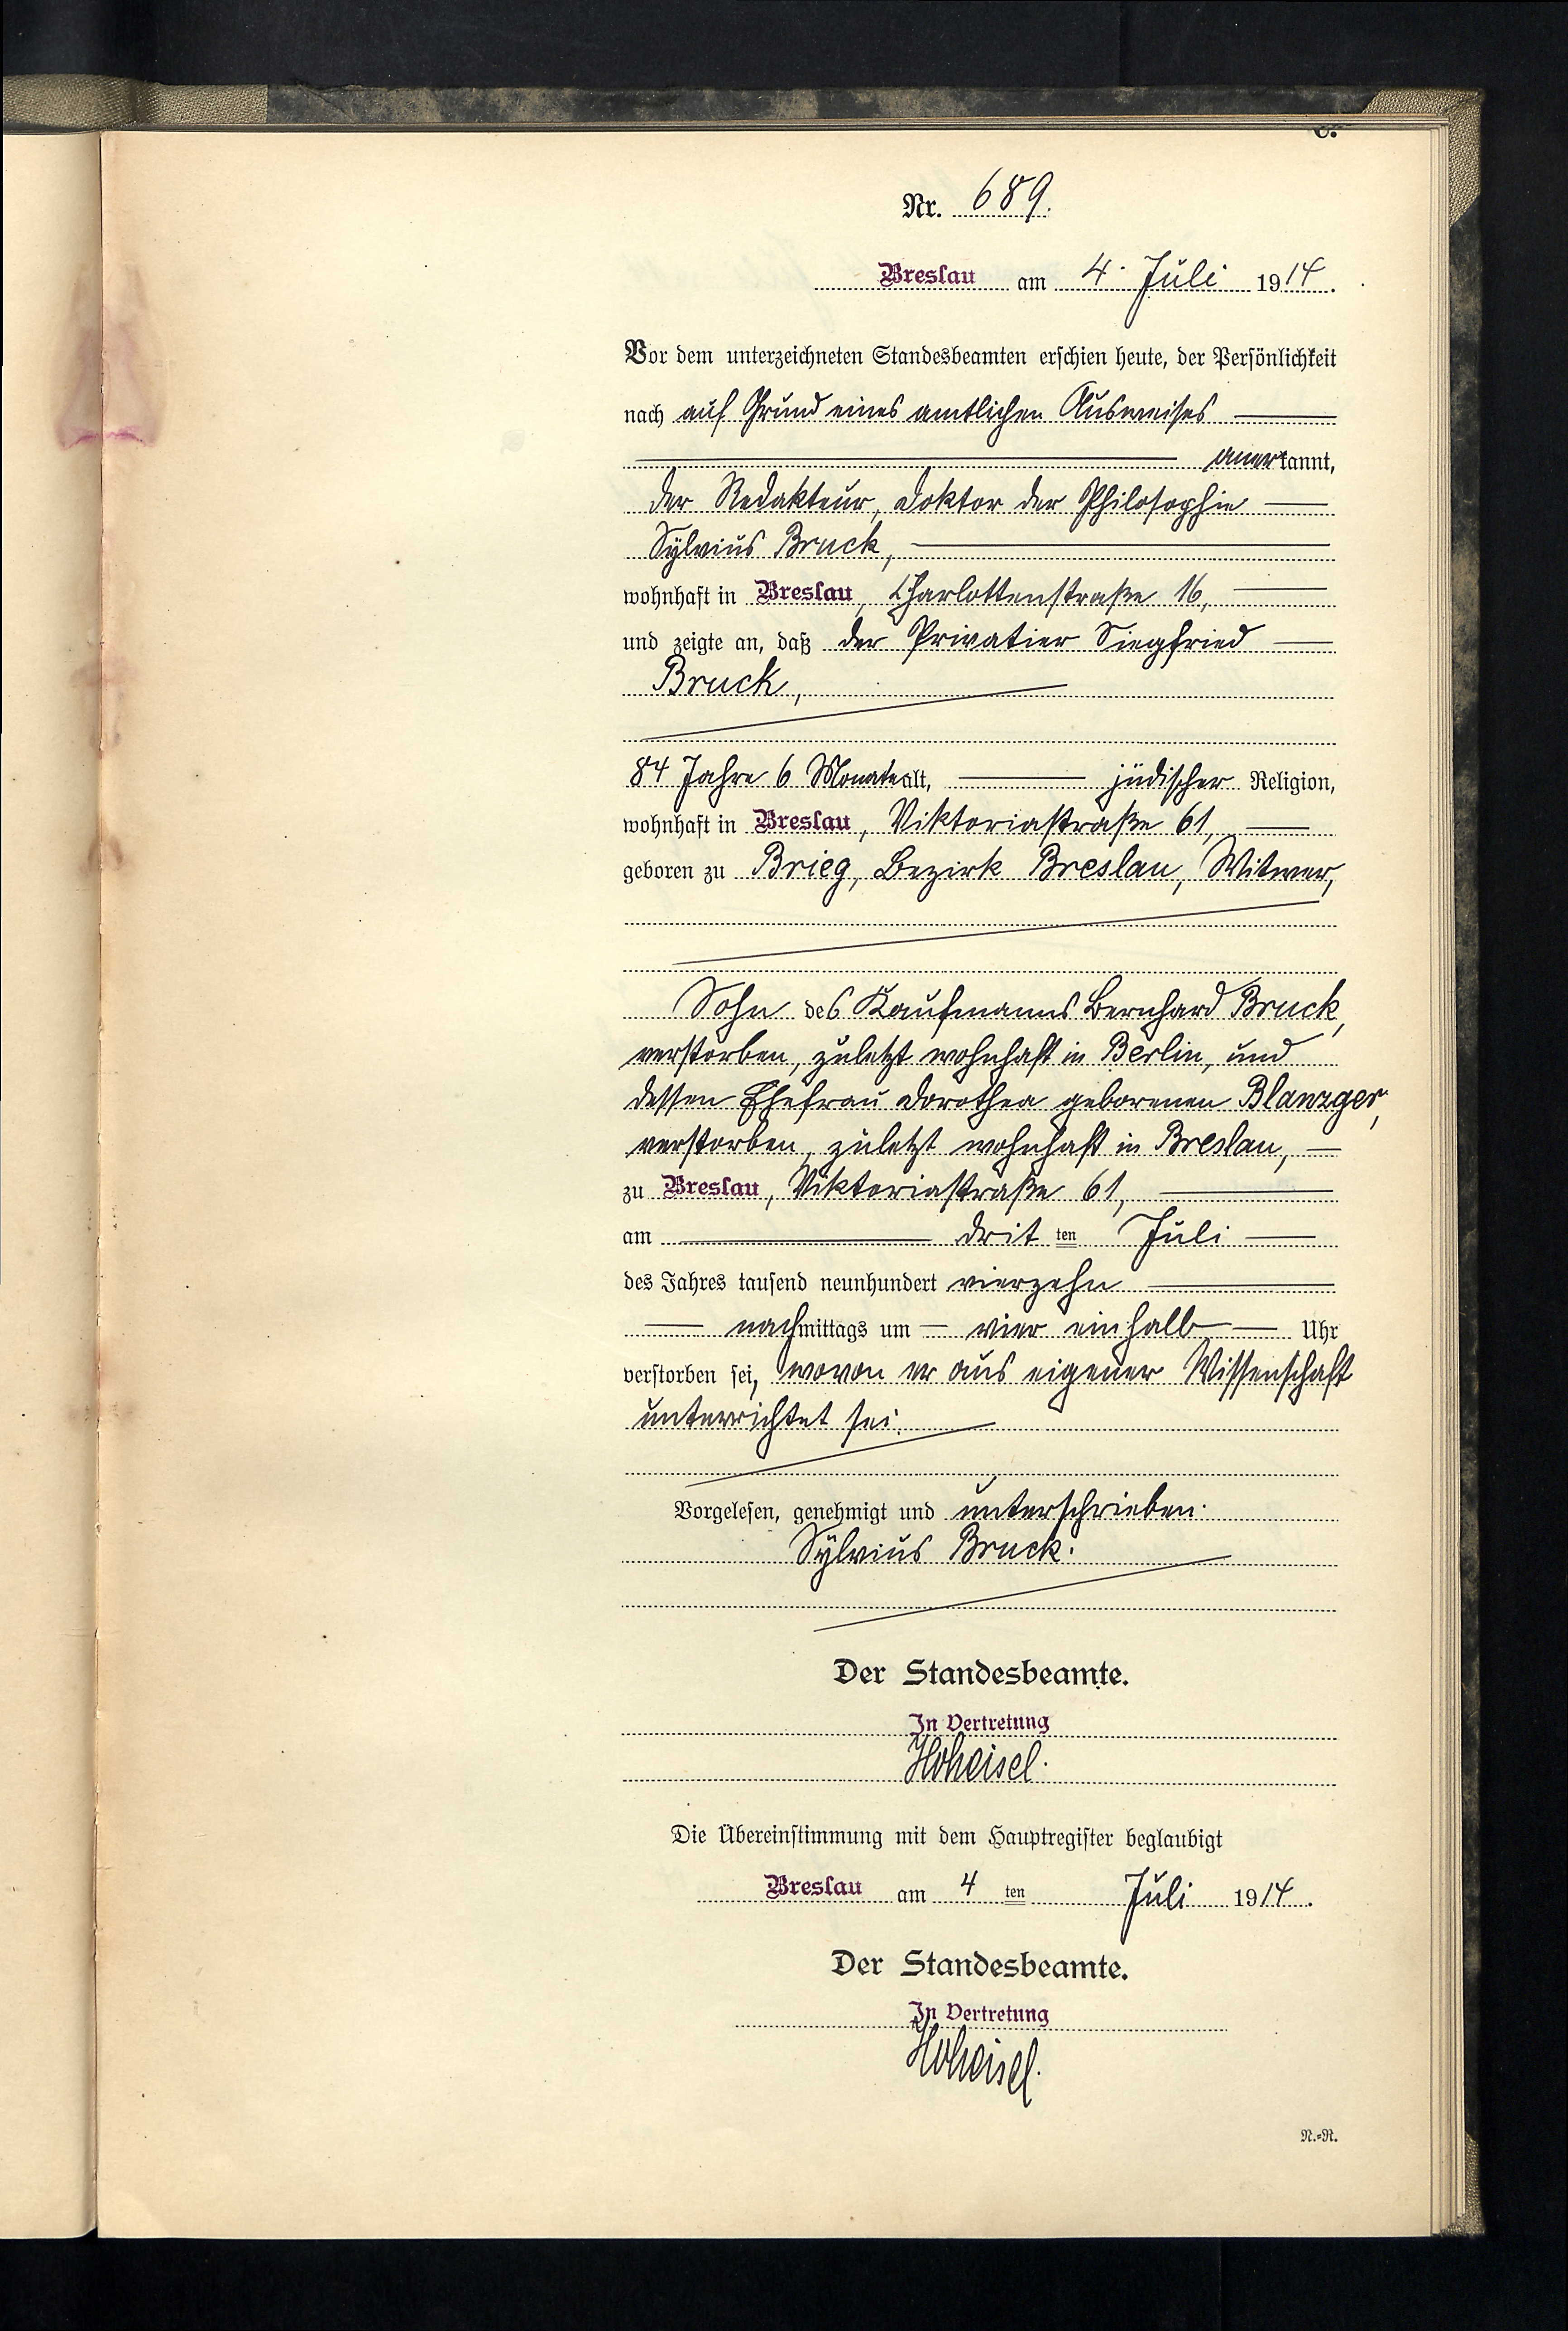 Nr. 689.
Breslau am 4. Juli 1914.
Vor dem unterzeichneten Standesbeamten erschien heute, der Persönlichkeit
nach auf Grund eines amtlichen Ausweises
anerkannt,
der Redakteur, Doktor der Philosophie
Sylvius Bruck,
wohnhaft in Breslau, Charlottenstraße 16,
und zeigte an, daß der Privatier Siegfried
Bruck,
84 Jahre 6 Monate alt, jüdischer Religion,
wohnhaft in Breslau, Viktoriastraße 61,
geboren zu Brieg, Bezirk Breslau, Witwer,
Sohn des Kaufmanns Bernhard Bruck,
verstorben, zuletzt wohnhaft in Berlin, und
dessen Ehefrau Dorothea geborenen
verstorben, zuletzt wohnhaft in Breslau,
zu Breslau, Viktoriastraße 61,
am drit ten Juli
des Jahres tausend neunhundert vierzehn
nachmittags um vier einhalb Uhr
verstorben sei, wovon er aus eigener Wissenschaft
unterrichtet sei.
Vorgelesen, genehmigt und unterschrieben.
Sylvius Bruck.
Der Standesbeamte.
In Vertretung
Hoheisel.
Die Übereinstimmung mit dem Hauptregister beglaubigt
Breslau am 4 ten Juli 1914.
Der Standesbeamte.
In Vertretung
Hoheisel.
N.=R.